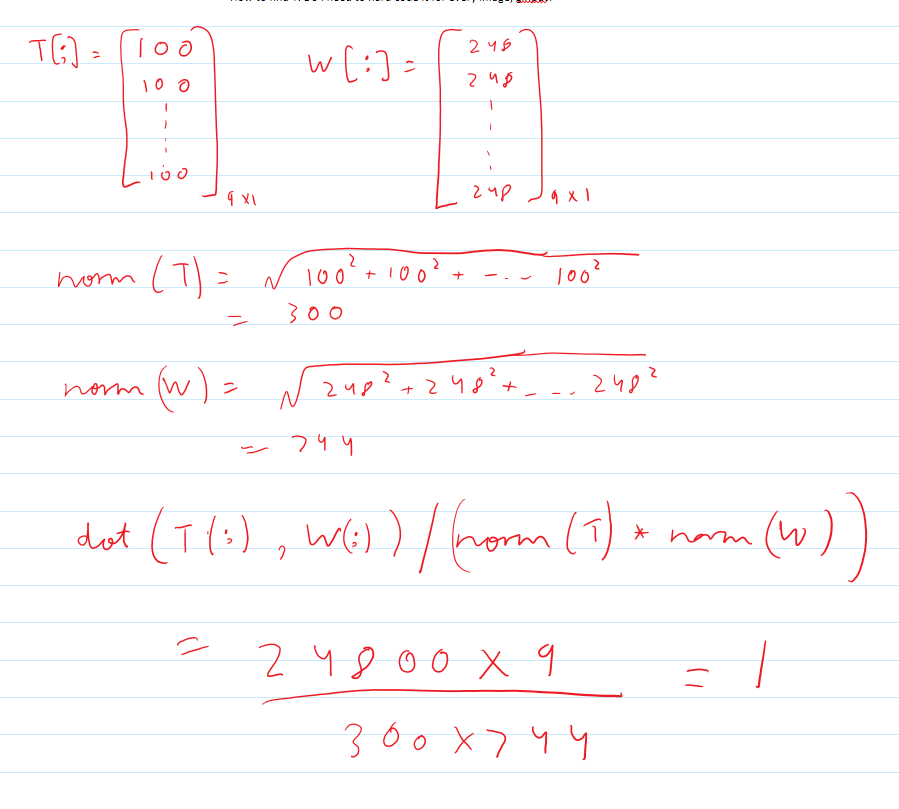 T[:] = [100 W[:] = [248
100 248
100]9x1 248]9x1
norm (T) = √100² + 100² + - -.. 100²
= 300
norm (W) = √248² + 248² + - - -. 248²
= 744
dot (T(:) , W(:)) / (norm (T) * norm (W))
= 24800 x 9 = 1
300 x 744